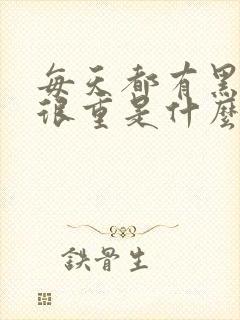 每天都有黑
很重是什麼
鉄骨生